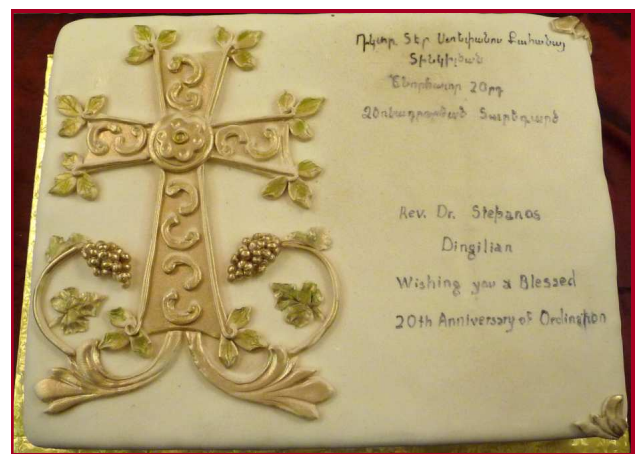 Դկտր. Տէր Ստեփանոս Քահանայ
Տինկիլեան
Շնորհաւոր 20րդ
Ձեռնադրութեան Տարեդարձ
Rev. Dr. Stepanos
Dingilian
Wishing you a Blessed
20th Anniversary of Ordination